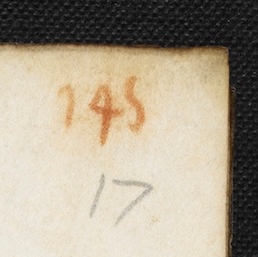 145
17